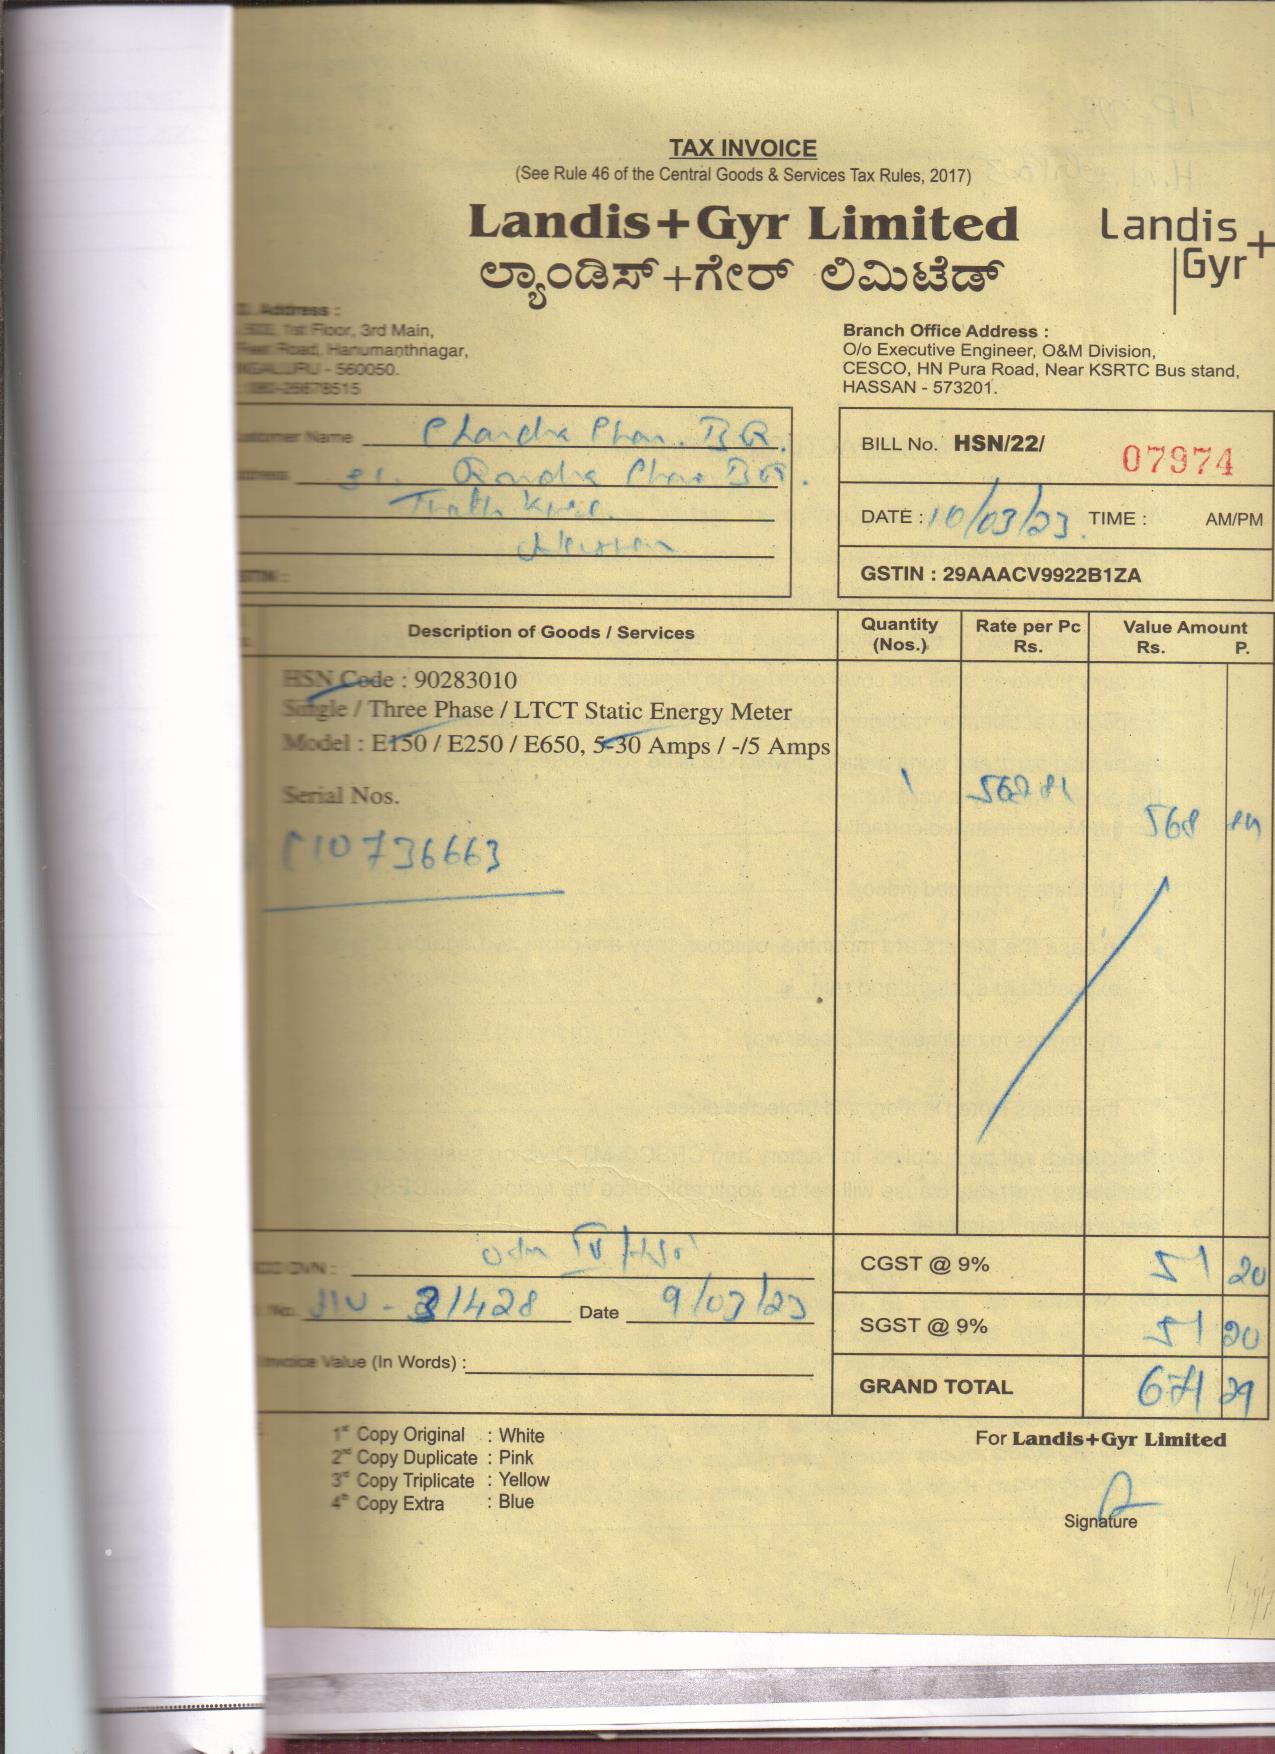 TAX INVOICE
(See Rule 46 of the Central Goods & Services Tax Rules, 2017)
Landis+Gyr Limited
ಲ್ಯಾಂಡಿಸ್+ಗೇರ್ ಲಿಮಿಟೆಡ್
Landis
Gyr+
Address :
1st Floor, 3rd Main,
Road, Hanumanthnagar,
- 560050.
Branch Office Address :
O/o Executive Engineer, O&M Division,
CESCO, HN Pura Road, Near KSRTC Bus stand,
HASSAN - 573201.
Name
BILL No. HSN/22/ 07974
DATE : 10/03/23. TIME : AM/PM
GSTIN : 29AAACV9922B1ZA
Description of Goods / Services
Quantity (Nos.)
Rate per Pc Rs.
Value Amount Rs. P.
HSN Code : 90283010
Single / Three Phase / LTCT Static Energy Meter
Model : E150 / E250 / E650, 5-30 Amps / -/5 Amps
Serial Nos.
1
568
10736663
CGST @ 9% 51 20
Date 9/03/23
SGST @ 9% 51 20
Value (In Words) :
GRAND TOTAL 671 29
1st Copy Original : White
2nd Copy Duplicate : Pink
3rd Copy Triplicate : Yellow
4th Copy Extra : Blue
For Landis+Gyr Limited
Signature